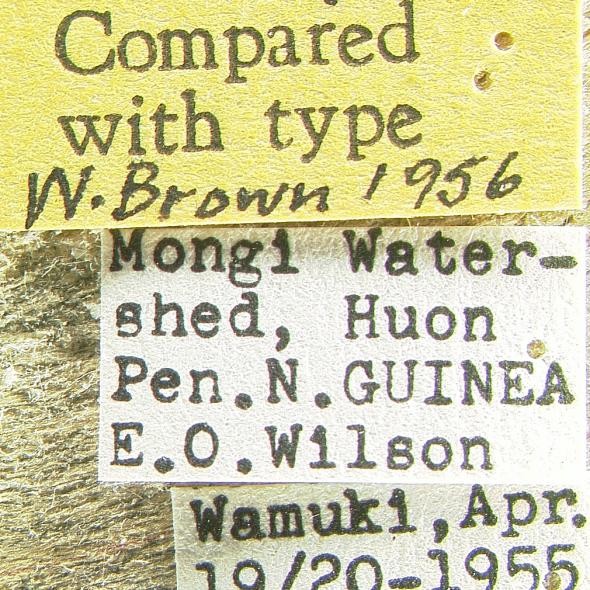 Compared
with type
W. Brown 1956
Mongi Water-
shed, Huon
Pen.N.GUINEA
E.O.Wilson
Wamuki,Apr.
19/20-1955